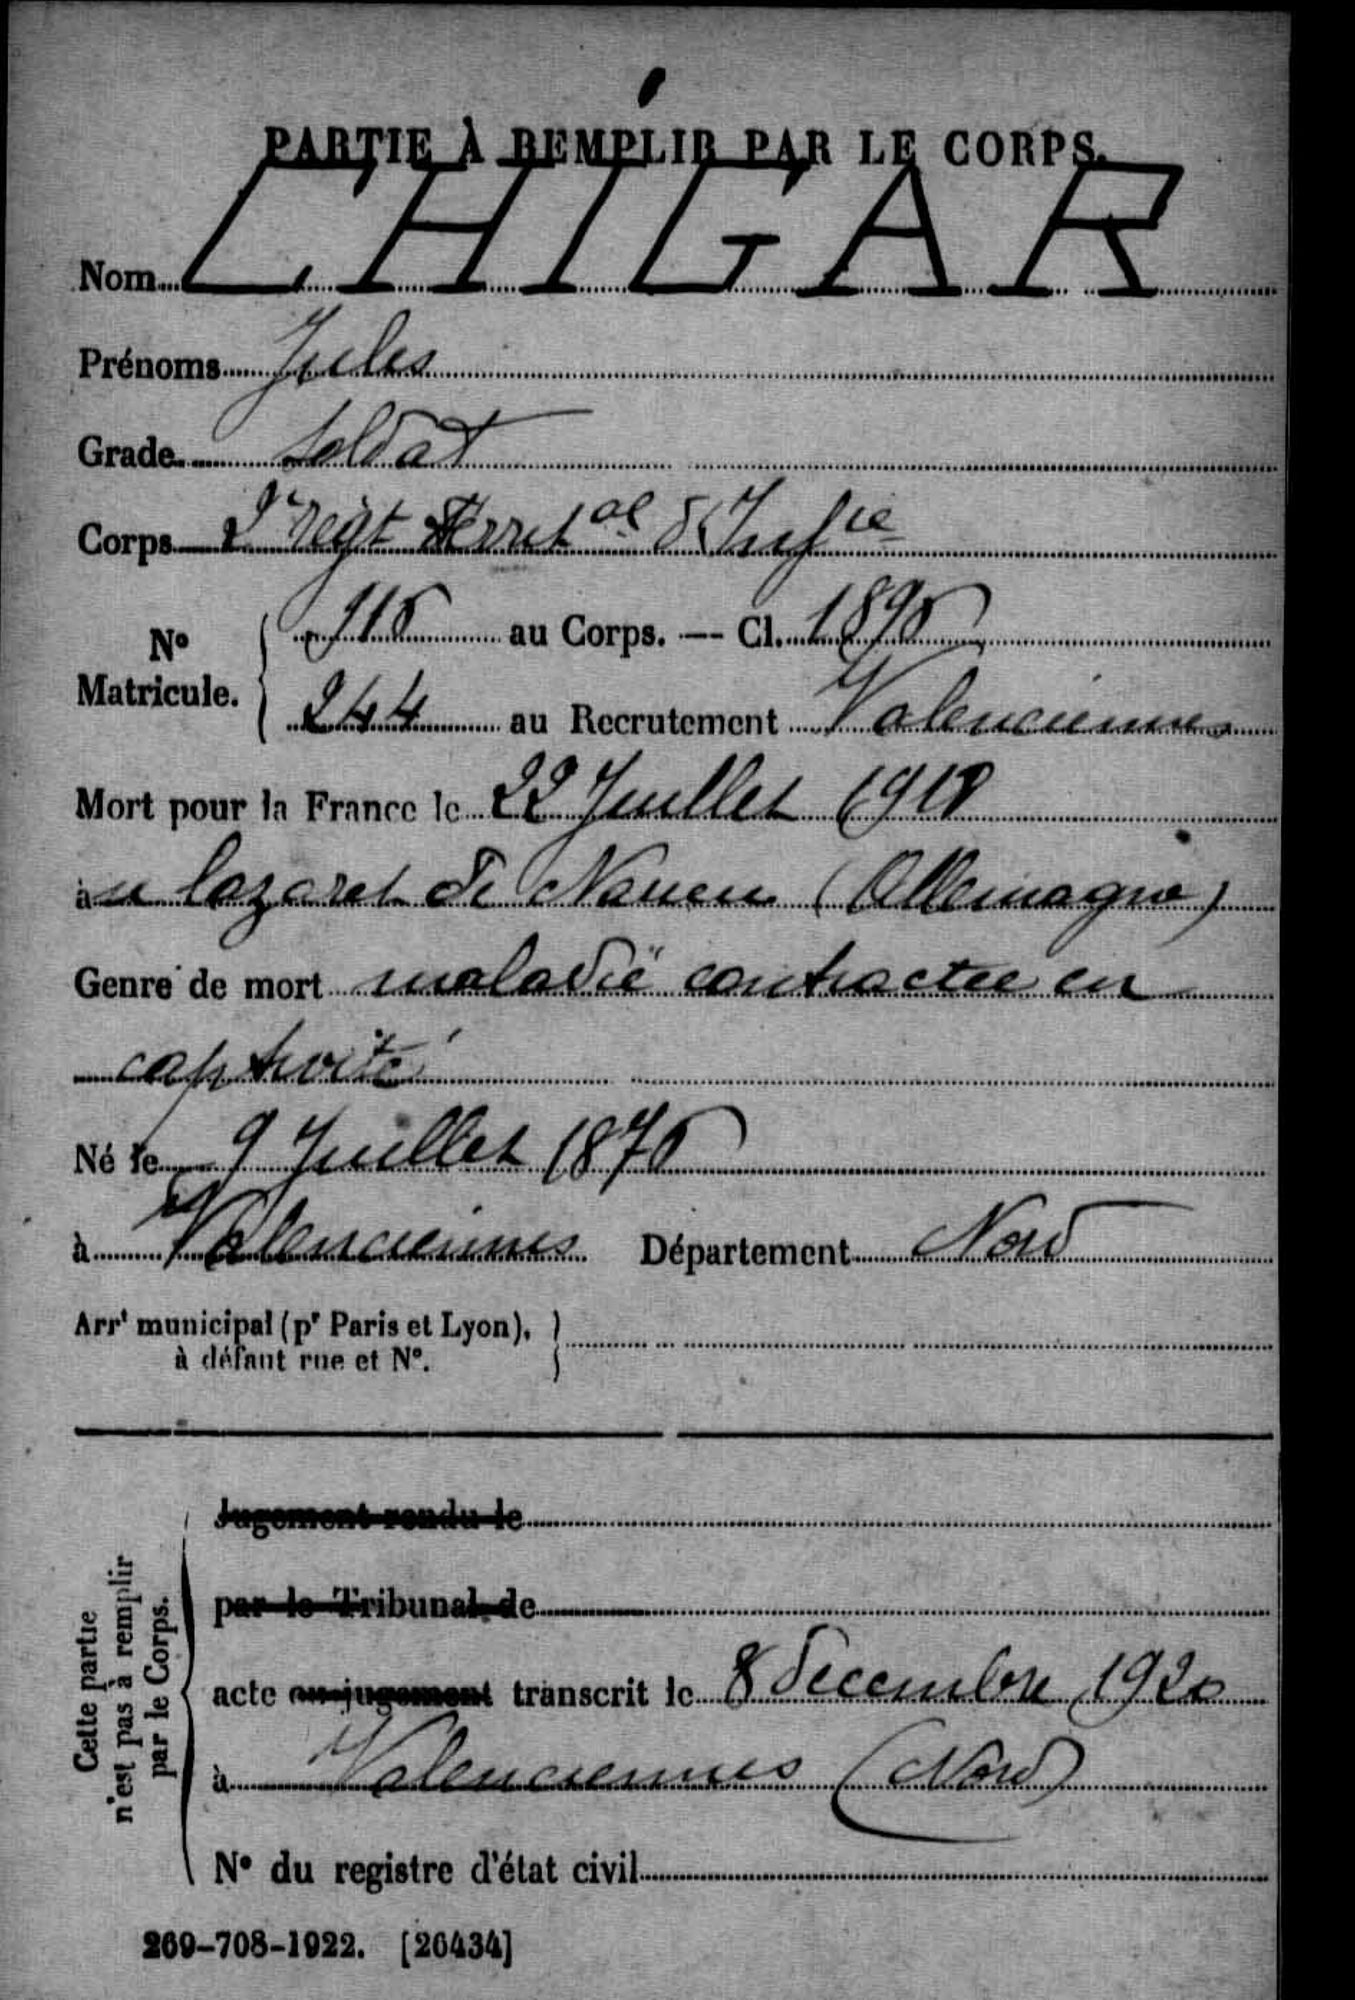 PARTIE À REMPLIR PAR LE CORPS.
Nom CHIGAR
Prénoms Jules
Grade soldat
Corps 2e regt territal d'Infie
No Matricule. 915 au Corps. — Cl. 1895
244 au Recrutement Valenciennes
Mort pour la France le 22 Juillet 1918
au lazaret de Nauen (Allemagne)
Genre de mort maladie contractee en
captivité
Né le 9 Juillet 1875
à Valenciennes Département Nord
Arrt municipal (pr Paris et Lyon),
à défaut rue et No.
Jugement rendu le
par le Tribunal de
acte ou jugement transcrit le 8 decembre 1920
à Valenciennes (Nord)
No du registre d'état civil
Cette partie
n'est pas à remplir
par le Corps.
269-708-1922. [26434]